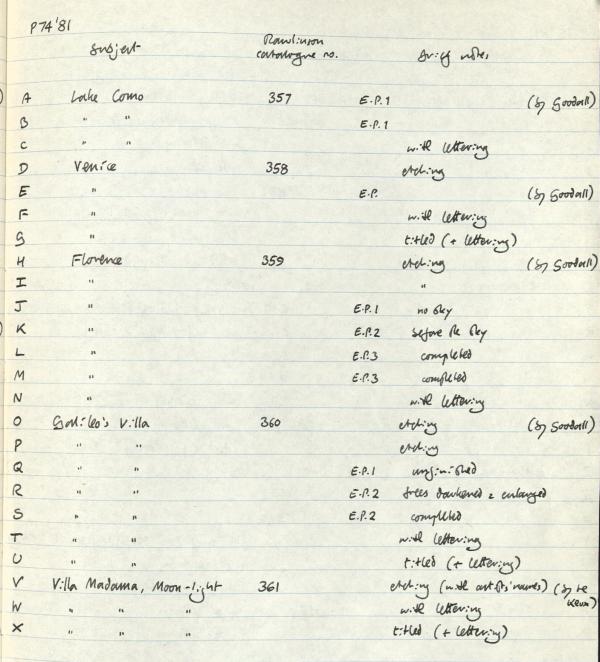 P74'81
Subject Rawlinson catalogue no. Brief notes
A Lake Como 357 E.P.1 (by Goodall)
B " " E.P.1
C " " with lettering
D Venice 358 etching
E " E.P. (by Goodall)
F " with lettering
G " titled (+ lettering)
H Florence 359 etching (by Goodall)
I " "
J " E.P.1 no sky
K " E.P.2 before the sky
L " E.P.3 completed
M " E.P.3 completed
N " with lettering
O Galileo's Villa 360 etching (by Goodall)
P " " etching
Q " " E.P.1 unfinished
R " " E.P.2 trees darkened & enlarged
S " " E.P.2 completed
T " " with lettering
U " " titled (+ lettering)
V Villa Madama, Moon-light 361 etching (with artists' names) (by Le Keux)
W " " " with lettering
X " " " titled (+ lettering)